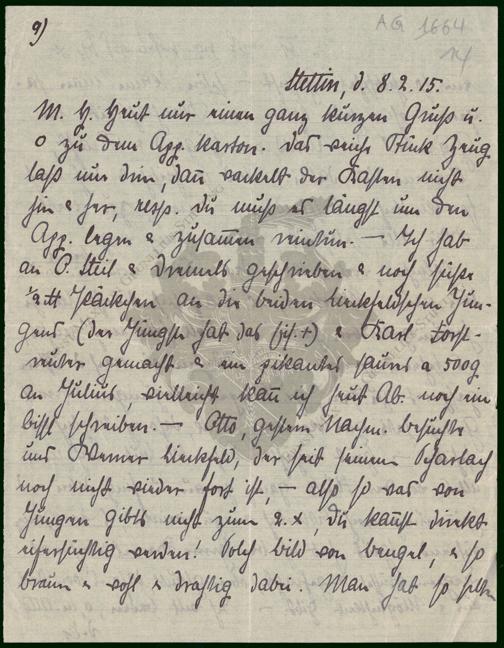 9)
AG 1664
Stettin, d. 8.2.15.
M. H. Heut nur einen ganz kurzen Gruß u.
o zu dem App. Karton. Das weiche Stück Zeug
laß nur drin, dann wackelt der Kasten nicht
hin & her, resp. du mußt es längst um den
App. legen & zusammen reintun. — Ich hab
an O. Steil & Dremels geschrieben & noch süße
1/2 Päckchen an die beiden Lieckfeldschen Jun-
gens (der Jüngste hat das) & Karl Forst-
reuter gemacht & ein pikantes saures a 500g
an Julius, vielleicht kann ich heut Ab. noch ein
bissl schreiben. — Otto, gestern Nachm. besuchte
uns Werner Lieckfeld, der seit seinem Scharlach
noch nicht wieder fort ist, — also so was von
Jungen gibts nicht zum 2. x, du kannst direkt
eifersüchtig werden! Solch bild von bengel, & so
braun & wohl & drahtig dabei. Man hat so selten